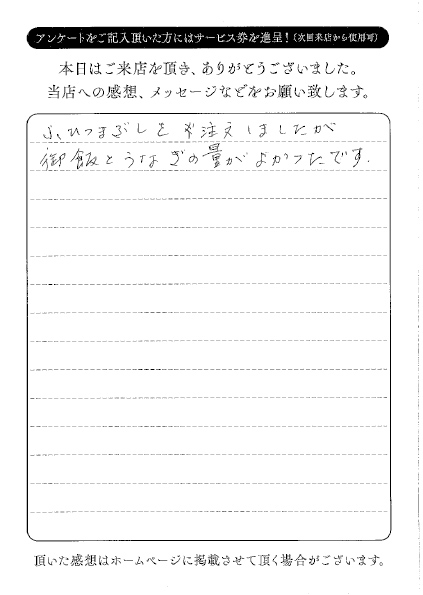 アンケートをご記入頂いた方にはサービス券を進呈！（次回来店から使用可）
本日はご来店を頂き、ありがとうございました。
当店への感想、メッセージなどをお願い致します。
ひつまぶしを 注文しましたが
御飯とうなぎの量がよかったです.
頂いた感想はホームページに掲載させて頂く場合がございます。